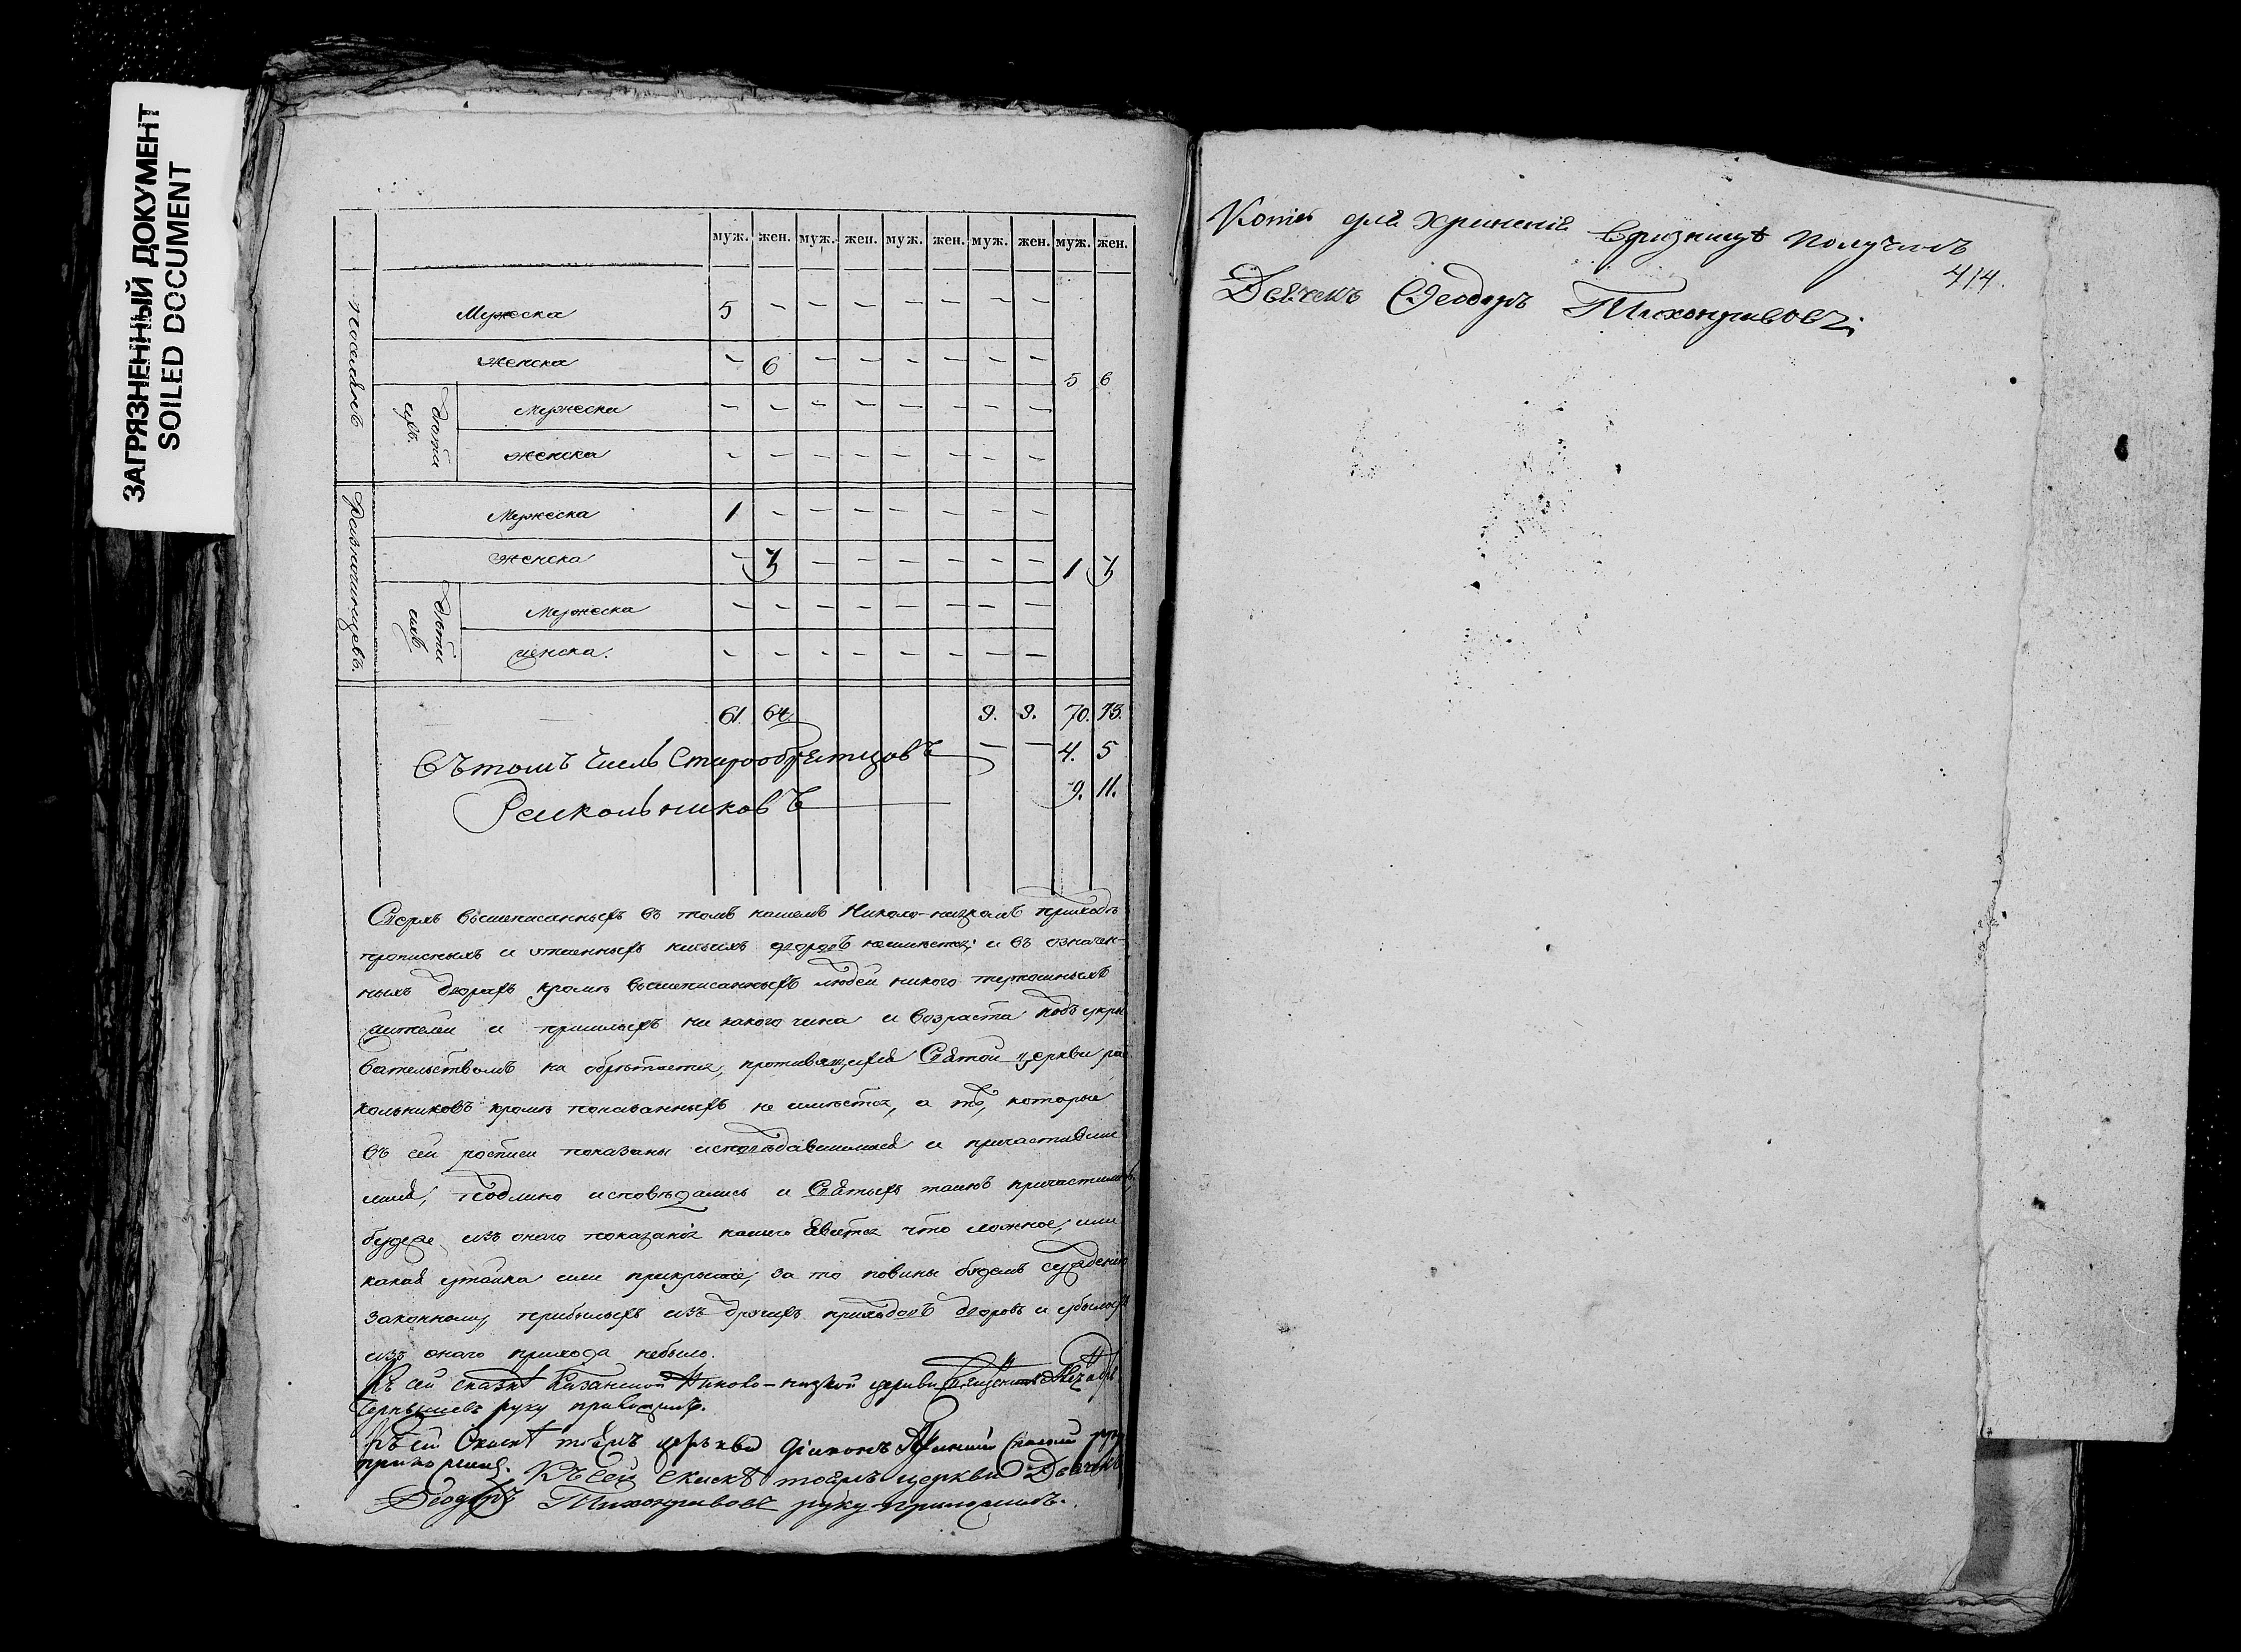 ЗАГРЯЗНЕННЫЙ ДОКУМЕНТ
SOILED DOCUMENT
муж. жен. муж. жен. муж. жен. муж. жен. муж. жен.
Поселянъ
Мужеска 5 – – – – – – –
Женска – 6 – – – – – – 5 6
Дѣти ихъ
Мужеска – – – – – – – –
Женска – – – – – – – –
Разночинцевъ.
Мужеска 1 – – – – – – –
Женска – – – – – – – 1
Дѣти ихъ
Мужеска – – – – – – – –
женска. – – – – – – – –
61. 64 9. 9. 70. 73.
Въ томъ числѣ Старообрятцовъ – – 4. 5
Раскольниковъ 9. 11.
Сверхъ вышеписанныхъ въ томъ нашемъ Николо-низкомъ приходѣ
прописныхъ и утаенныхъ ничьихъ дворовъ неимѣется; и въ означен-
ныхъ дворахъ кромѣ вышеписанныхъ людей никого
жителей и пришлыхъ ни какого чина и возраста подъ укры
вательствомъ не обрѣтается, противящихся Святой церкви рас
кольниковъ кромѣ показанныхъ не имѣется, а тѣ, которые
въ сей росписи показаны исповѣдавшимися и причастивши
мися, подлинно исповѣдались и Святыхъ таинъ причастились,
будеже изъ оного показанія нашего явится что ложное, или
какая утайка или прикрытіе, за то повины будемъ сужденію
законному, прибылыхъ изъ другихъ приходовъ дворовъ и убылыхъ
изъ онаго прихода небыло.
Къ сей сказкѣ Казанской Николо-низкой церкви Священникъ
руку приложилъ.
Къ сей Скаскѣ тояжъ церькви діаконъ
приложилъ. Къ сей скаскѣ тояжъ церкви Дьячекъ
Ѳеодоръ Тихонравовъ руку приложилъ.
Копію для храненія вризницѣ получилъ
414.
Дьячекъ Ѳеодоръ Тихонравовъ.